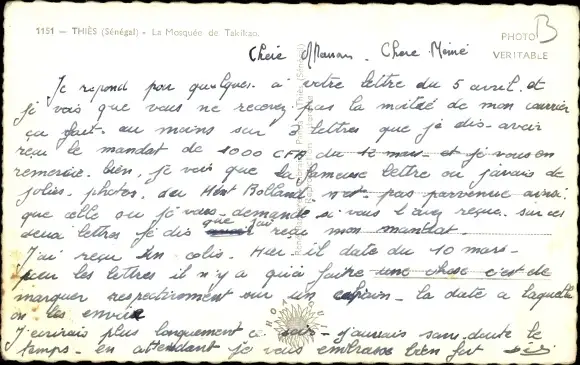 1151 — THIÈS (Sénégal) - La Mosquée de Takikao.
PHOTO
VERITABLE
B
Chère Maman. Chere Mémé
Je repond par quelques. à votre lettre du 5 avril. et
je vois que vous ne recevez pas la moitié de mon courrier
ça fait. au moins sur 3 lettres que je dis. avoir
reçu le mandat de 1000 CFA du 12 mars et je vous en
remercie. bien. je vois que la fameuse lettre ou j'avais de
jolies. photos. du Bolland n'est pas parvenue ainsi.
que celle ou je vous demande si vous l'avez reçue. sur ces
deux lettres je dis que j'ai reçu mon mandat.
J'ai reçu un colis. Hier il date du 10 mars.
pour les lettres il n'y a qu'a faire une chose c'est de
marquer sur un la date a laquelle
on les envoie
J'ecrirais plus longuement ce soir. j'aurais sans doute le
temps. en attendant je vous embrasse bien fort